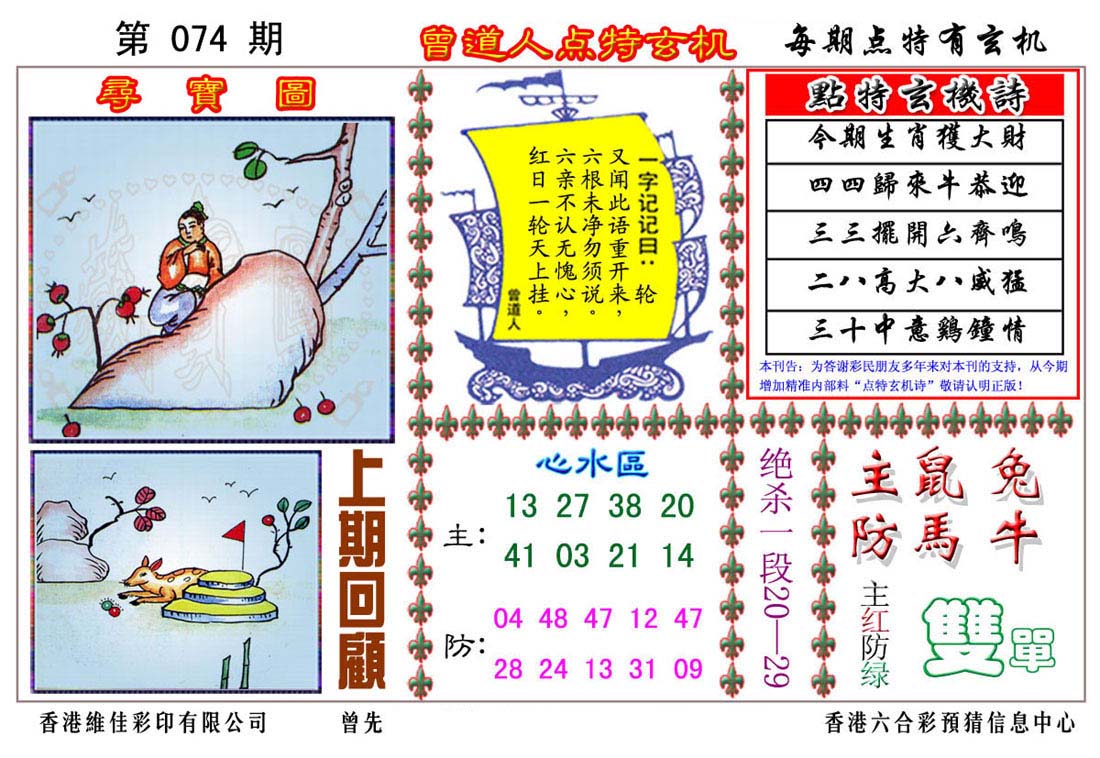 第 074 期
曾道人点特玄机
每期点特有玄机
尋寶圖
一字记记曰：轮
又闻此语重开来，
六根未净勿须说。
六亲不认无愧心，
红日一轮天上挂。
曾道人
點特玄機詩
今期生肖獲大財
四四歸來牛恭迎
三三擺開六齊鳴
二八高大八威猛
三十中意鷄鐘情
本刊告：为答谢彩民朋友多年来对本刊的支持，从今期
增加精准内部料“点特玄机诗”敬请认明正版！
上期回顧
心水區
主：
13 27 38 20
41 03 21 14
防：
04 48 47 12 47
28 24 13 31 09
绝杀一段20—29
主鼠兔
防馬牛
主红防绿
雙單
香港維佳彩印有限公司
曾先
香港六合彩預猜信息中心